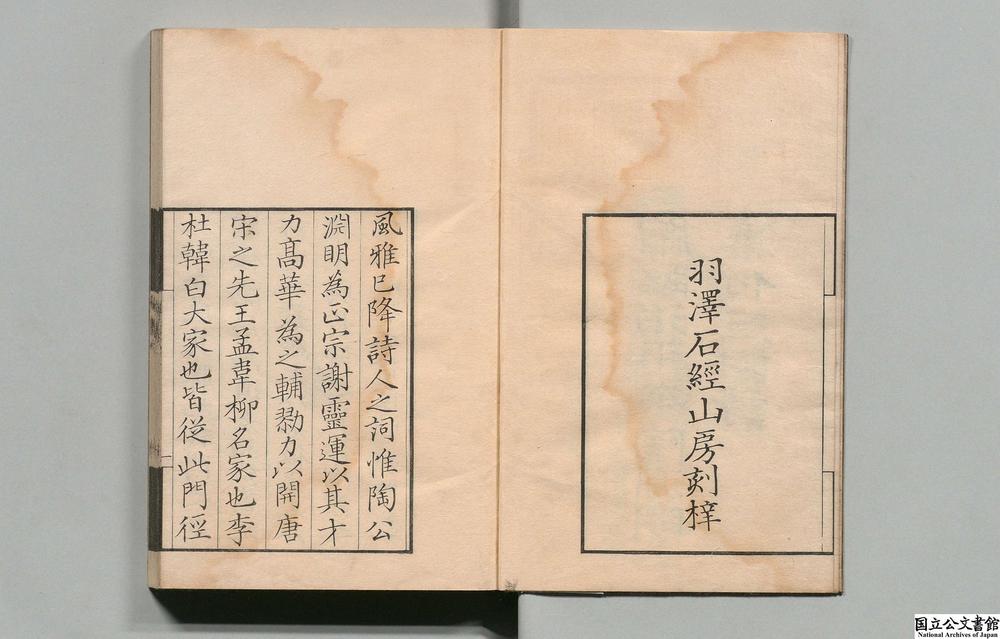 羽澤石經山房刻梓
風雅已降詩人之詞惟陶公
淵明為正宗謝靈運以其才
力高華為之輔勠力以開唐
宋之先王孟韋柳名家也李
杜韓白大家也皆從此門徑
国立公文書館
National Archives of Japan